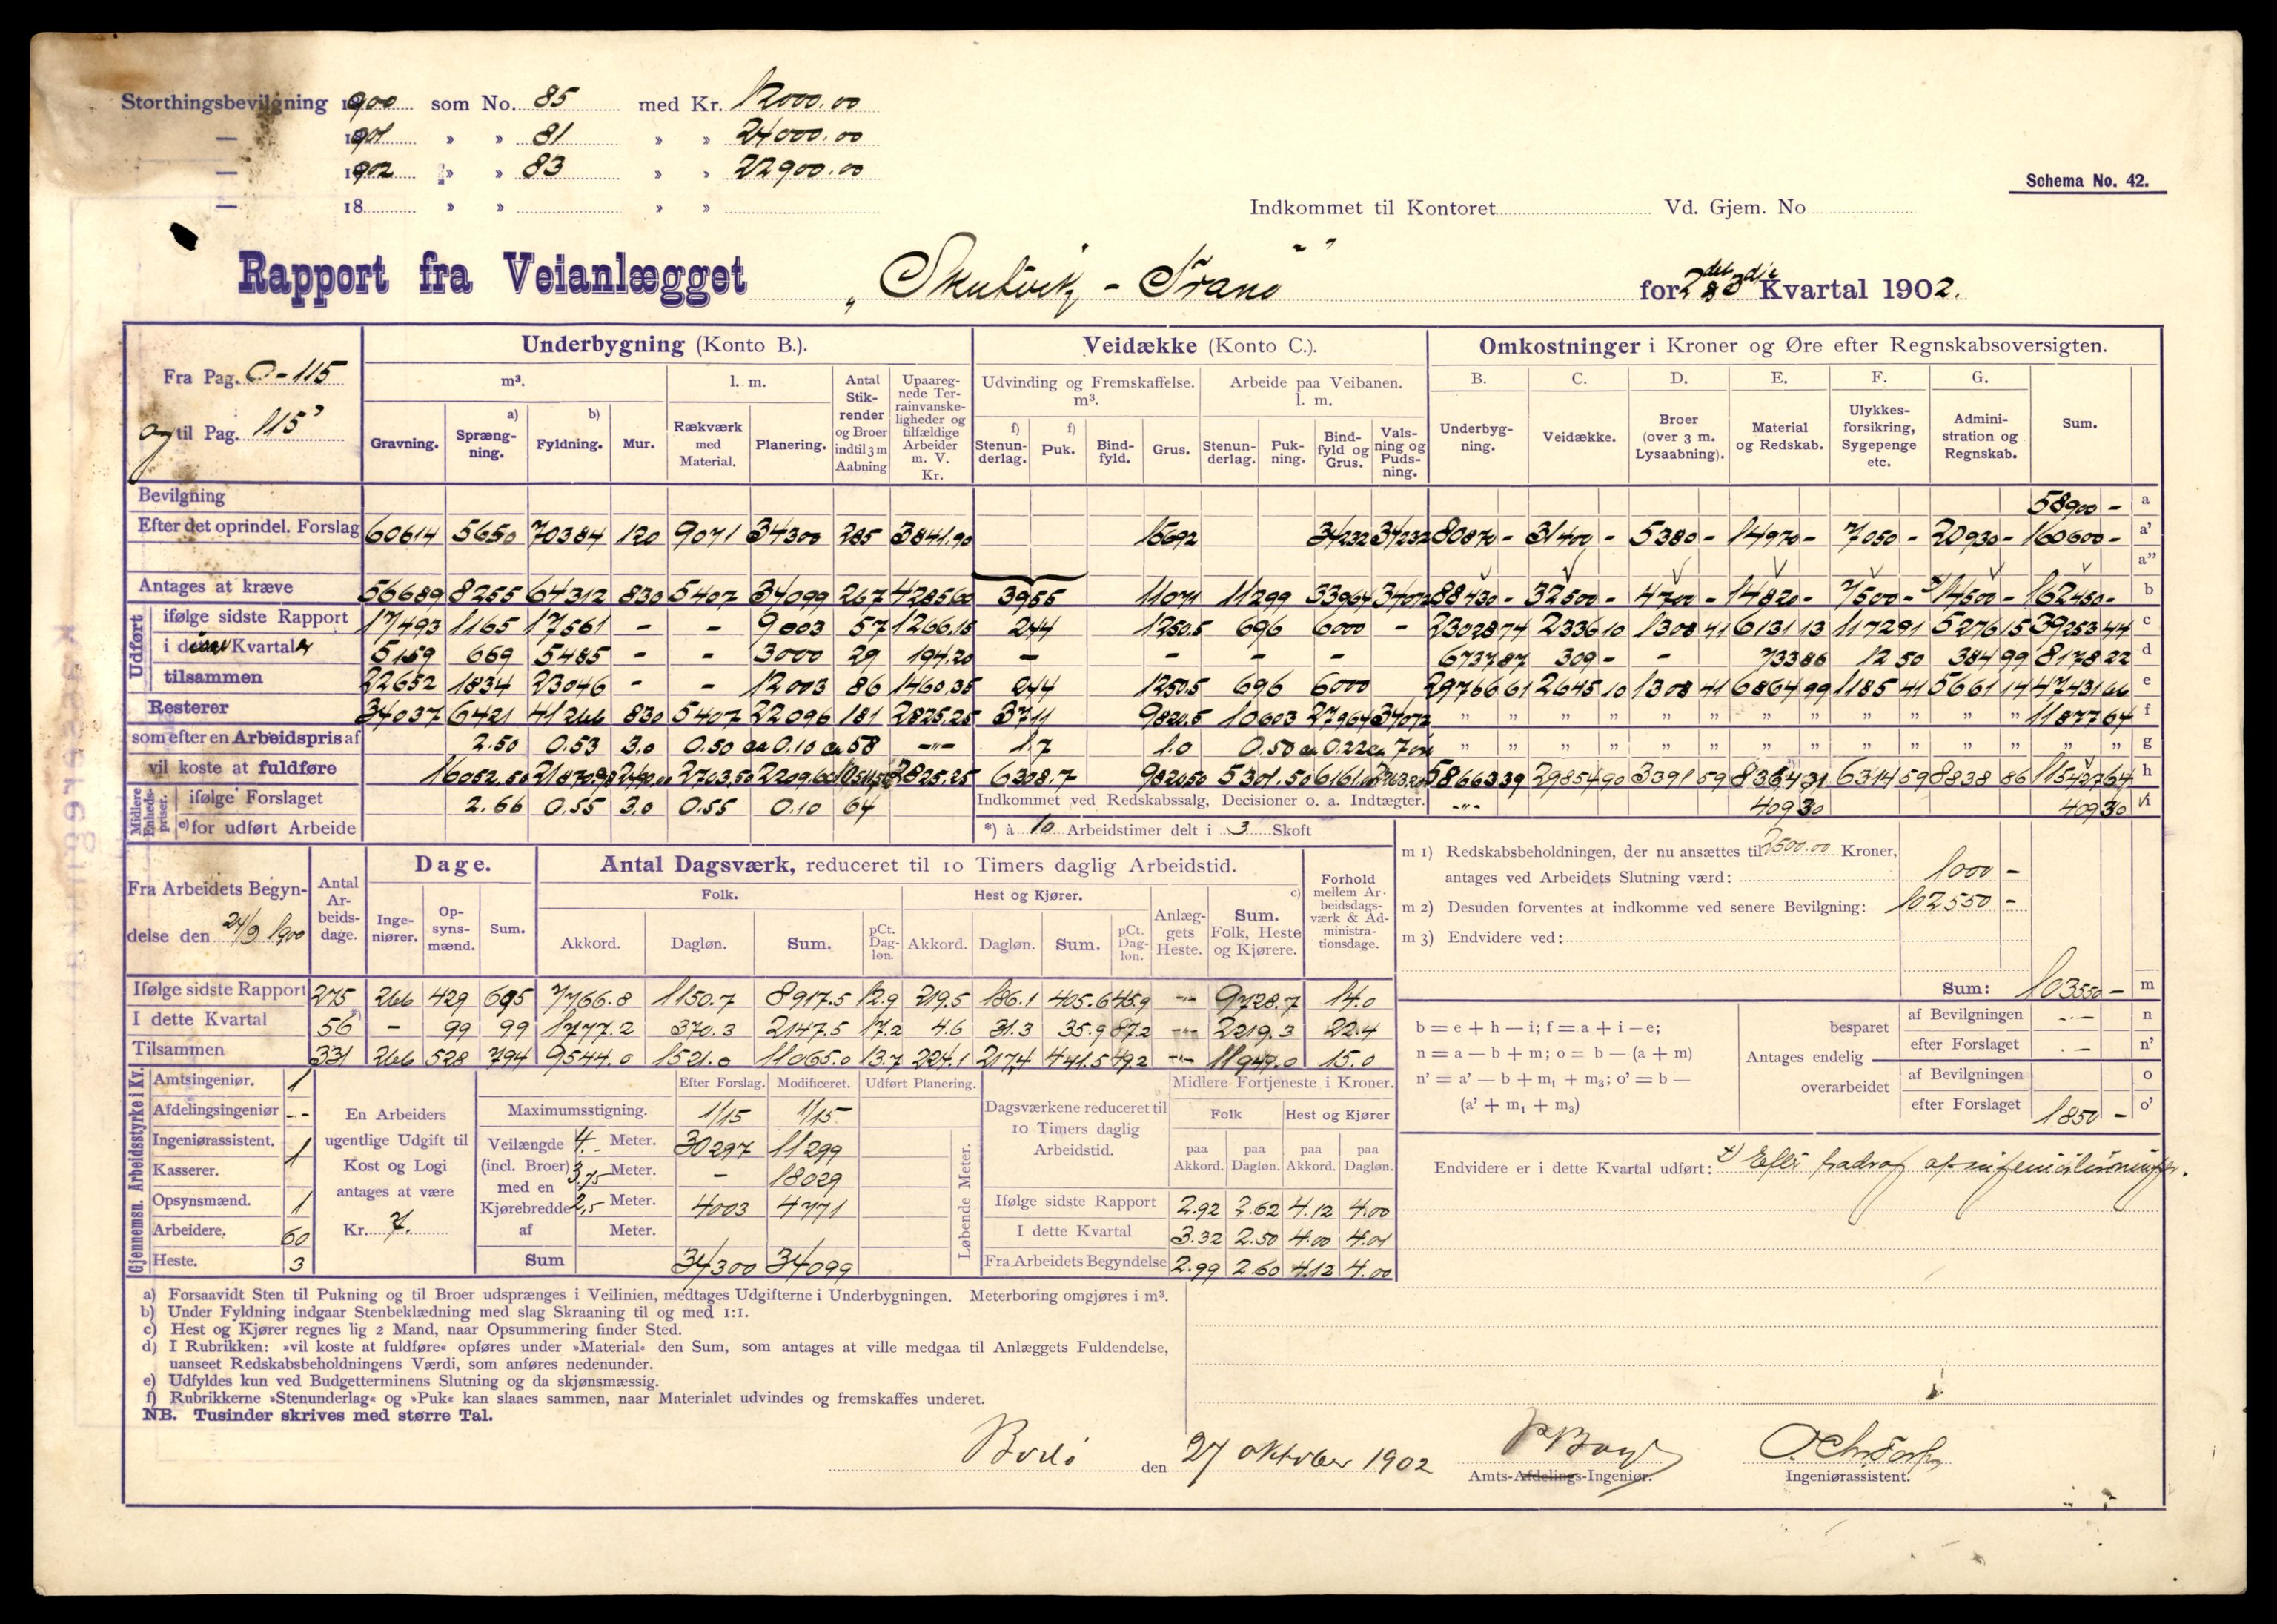 Storthingsbevilgning 1900 som No. 85 med Kr. 12000.00
— 1901 » » 81 » » 24000.00
— 1902 » » 83 » » 22900.00
— 18 » » » »
Schema No. 42.
Indkommet til Kontoret Vd. Gjem. No
Rapport fra Veianlægget „Skutvik - Tranö” for 2det & 3die Kvartal 1902.
Fra Pag. 0-115
og til Pag. 115
Underbygning (Konto B.). Veidække (Konto C.). Omkostninger i Kroner og Øre efter Regnskabsoversigten.
m³. l. m. Antal Stikrender og Broer indtil 3 m Aabning Upaaregnede Terrainvanskeligheder og tilfældige Arbeider m. V. Kr. Udvinding og Fremskaffelse. m³. Arbeide paa Veibanen. l. m. B. C. D. E. F. G. Sum.
Gravning. a) Sprængning. b) Fyldning. Mur. Rækværk med Material. Planering. f) Stenunderlag. f) Puk. Bindfyld. Grus. Stenunderlag. Pukning. Bindfyld og Grus. Valsning og Pudsning. Underbygning. Veidække. Broer (over 3 m. Lysaabning). Material og Redskab. Ulykkesforsikring, Sygepenge etc. Administration og Regnskab.
Bevilgning 58900 - a
Efter det oprindel. Forslag 60614 5650 70384 120 9071 34300 285 3841.90 15692 34232 34232 80870 - 31400 - 5380 - 14970 - 7050 - 20930 - 160600 - a'
a''
Antages at kræve 56689 8255 64312 830 5407 34099 267 4285.60 3955 11071 11299 33964 34072 88430 - 32500 - 4700 - 14820 - 7500 - 14500 - 162450 - b
Udført
ifølge sidste Rapport 17493 1165 17561 - - 9003 57 1266.15 244 1250.5 696 6000 - 23028 74 2336 10 1308 41 6131 13 1172 91 5276 15 39253 44 c
i disse Kvartaler 5159 669 5485 - - 3000 29 194.20 - - - - 6737 87 309 - - 733 86 12 50 384 99 8178 22 d
tilsammen 22652 1834 23046 - - 12003 86 1460.35 244 1250.5 696 6000 29766 61 2645 10 1308 41 6864 99 1185 41 5661 14 47431 66 e
Resterer 34037 6421 41266 830 5407 22096 181 2825.25 3711 9820.5 10603 27964 34072 " " " " " " " " " " " " 11877 64 f
som efter en Arbeidspris af 2.50 0.53 3.0 0.50 ca 0.10 ca 58 -"- 1.7 1.0 0.50 ca 0.22 ca 7 " " " " " " " " " " " " " " g
vil koste at fuldføre 16052.50 21870.98 2490.00 2703.50 2209.60 2825.25 6308.7 9820.50 5301.50 58663 39 29854 90 3391 59 8364 31 6314 59 8838 86 115427 64 h
Midlere Enhedspriser.
ifølge Forslaget 2.66 0.55 3.0 0.55 0.10 64 Indkommet ved Redskabssalg, Decisioner o. a. Indtægter. -"- 409 30 409 30 i
e) for udført Arbeide *) à 10 Arbeidstimer delt i 3 Skoft
Fra Arbeidets Begyndelse den 24/9 1900
Antal Arbeidsdage. Dage. Antal Dagsværk, reduceret til 10 Timers daglig Arbeidstid. Forhold mellem Arbeidsdagsværk & Administrationsdage.
Ingeniører. Opsynsmænd. Sum. Folk. Hest og Kjører. Anlæggets Heste. c) Sum. Folk, Heste og Kjørere.
Akkord. Dagløn. Sum. pCt. Dagløn. Akkord. Dagløn. Sum. pCt. Dagløn.
Ifølge sidste Rapport 275 266 429 695 7766.8 1150.7 8917.5 12.9 219.5 186.1 405.6 45.9 -"- 9728.7 14.0
I dette Kvartal 56 - 99 99 1777.2 370.3 2147.5 17.2 4.6 31.3 35.9 87.2 -"- 2219.3 22.4
Tilsammen 331 266 528 794 9544.0 1521.0 11065.0 13.7 224.1 217.4 441.5 49.2 -"- 11947.0 15.0
m 1) Redskabsbeholdningen, der nu ansættes til 2500.00 Kroner,
antages ved Arbeidets Slutning værd: 1000 -
m 2) Desuden forventes at indkomme ved senere Bevilgning: 102550 -
m 3) Endvidere ved:
Sum: 103550 - m
b = e + h — i; f = a + i — e;
n = a — b + m; o = b — (a + m)
n' = a' — b + m₁ + m₃; o' = b —
(a' + m₁ + m₃)
Antages endelig
besparet af Bevilgningen -"- n
efter Forslaget -"- n'
overarbeidet af Bevilgningen o
efter Forslaget 1850 - o'
Gjennemsn. Arbeidsstyrke i Kv.
Amtsingeniør. 1
Afdelingsingeniør -"-
Ingeniørassistent. 1
Kasserer.
Opsynsmænd. 1
Arbeidere. 60
Heste. 3
En Arbeiders ugentlige Udgift til Kost og Logi antages at være
Kr. 7.
Efter Forslag. Modificeret. Udført Planering.
Maximumsstigning. 1/15 1/15
Veilængde (incl. Broer) med en Kjørebredde af
4. - Meter. 30297 11299
3.75 Meter. - 18029
2,5 Meter. 4003 4771
Meter.
Sum 34300 34099
Løbende Meter.
Dagsværkene reduceret til 10 Timers daglig Arbeidstid.
Midlere Fortjeneste i Kroner.
Folk Hest og Kjører
paa Akkord. paa Dagløn. paa Akkord. paa Dagløn.
Ifølge sidste Rapport 2.92 2.62 4.12 4.00
I dette Kvartal 3.32 2.50 4.00 4.01
Fra Arbeidets Begyndelse 2.99 2.60 4.12 4.00
Endvidere er i dette Kvartal udført: Efter fradrag af
a) Forsaavidt Sten til Pukning og til Broer udsprænges i Veilinien, medtages Udgifterne i Underbygningen. Meterboring omgjøres i m³.
b) Under Fyldning indgaar Stenbeklædning med slag Skraaning til og med 1:1.
c) Hest og Kjører regnes lig 2 Mand, naar Opsummering finder Sted.
d) I Rubrikken: »vil koste at fuldføre« opføres under »Material« den Sum, som antages at ville medgaa til Anlæggets Fuldendelse,
uanseet Redskabsbeholdningens Værdi, som anføres nedenunder.
e) Udfyldes kun ved Budgetterminens Slutning og da skjønsmæssig.
f) Rubrikkerne »Stenunderlag« og »Puk« kan slaaes sammen, naar Materialet udvindes og fremskaffes underet.
NB. Tusinder skrives med større Tal.
Bodö den 27 oktober 1902
Amts-Afdelings-Ingeniør. Ingeniørassistent.